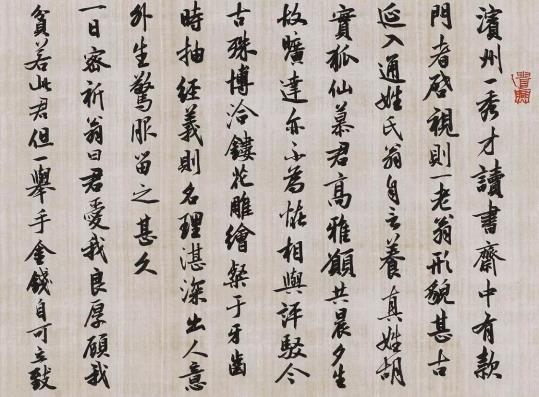 濱州一秀才讀書齋中有款
門者啓視則一老翁形貌甚古
延入通姓氏翁自言養真姓胡
實狐仙慕君高雅願共晨夕生
故曠達亦不為怪相與評駁今
古殊博洽鏤花雕繪粲于牙齒
時抽經義則名理湛深出人意
外生驚服留之甚久
一日密祈翁曰君愛我良厚顧我
貧若此君但一舉手金錢自可立致